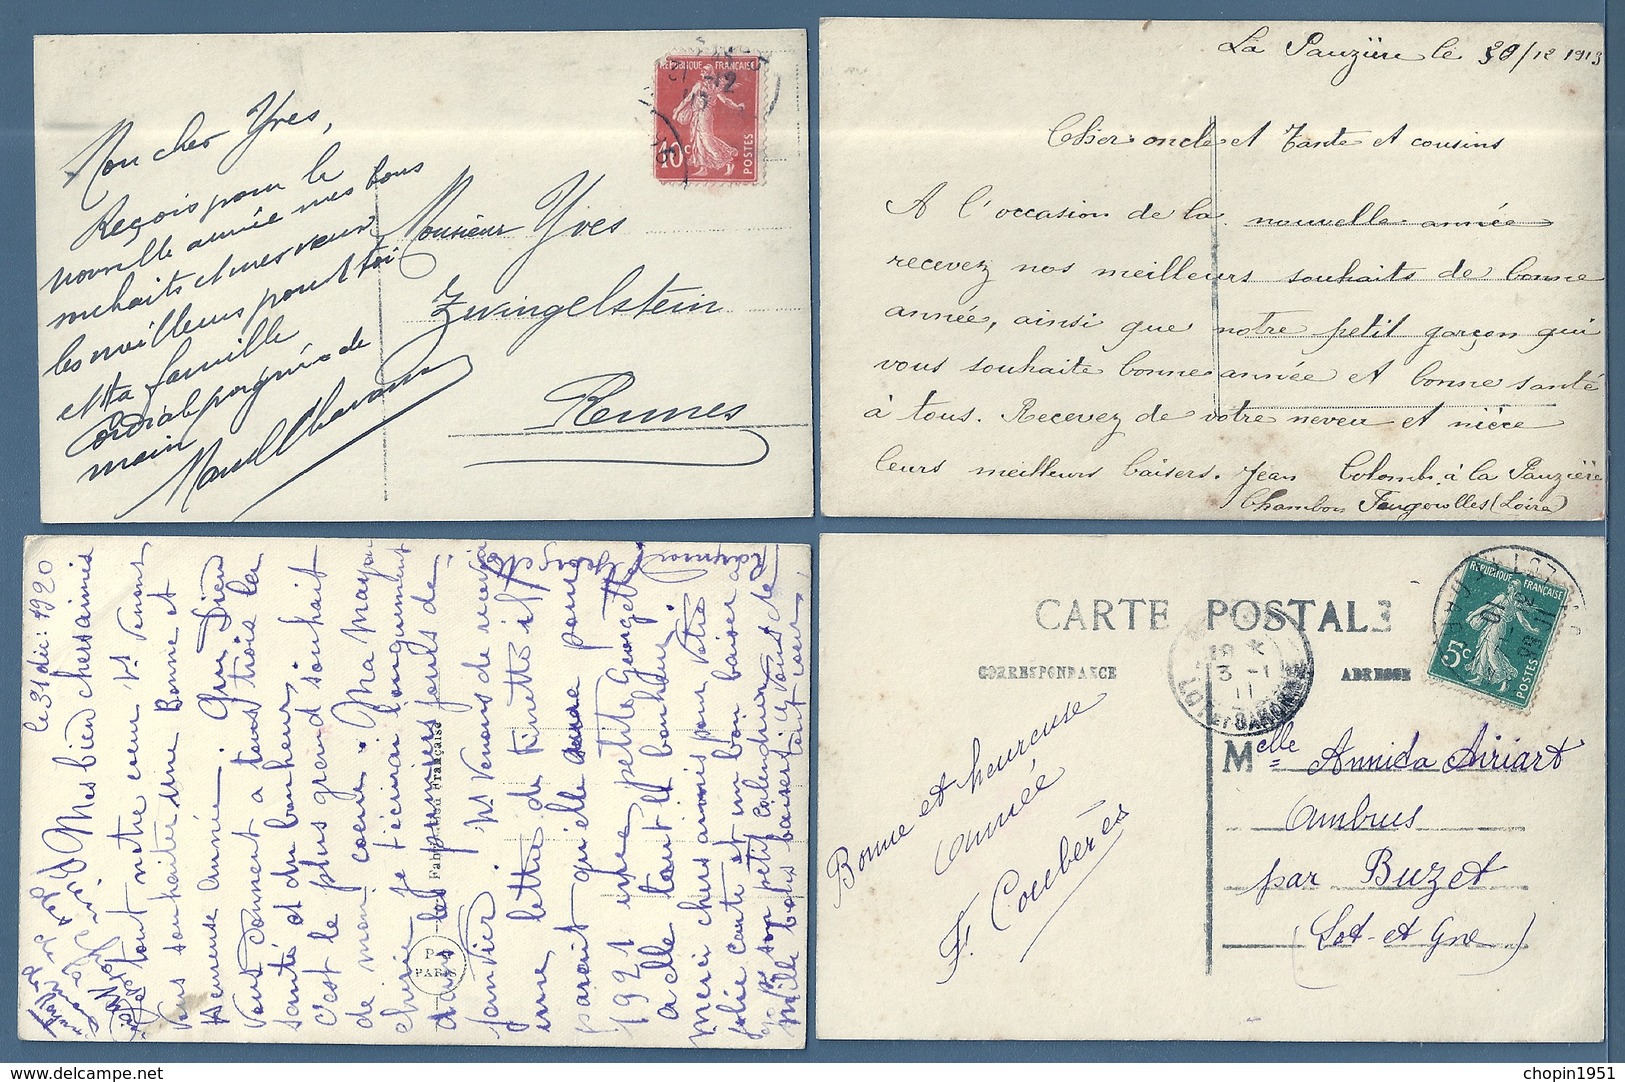 Mon cher Yves,
Reçois pour la
nouvelle année mes bons
souhaits et mes voeux
les meilleurs pour toi
et ta famille
Cordiale poignée de
main
RÉPUBLIQUE FRANÇAISE
10c
POSTES
Monsieur Yves
Zwingelstein
Rennes
La Pauzière le 30/12 1913
Cher oncle et Tante et cousins
A l'occasion de la nouvelle année
recevez nos meilleurs souhaits de bonne
année, ainsi que notre petit garçon qui
vous souhaite bonne année et bonne santé
à tous. Recevez de votre neveu et nièce
leurs meilleurs baisers. Jean Colomb à la Pauzière
Chambon Feugerolles (Loire)
le 31 déc: 1920
Mes bien chers amis
tout notre coeur Ns Venons
Vous souhaiter une Bonne et
Heureuse année. Que Dieu
Vous donnent a tous trois la
santé et du bonheur,
c'est le plus grand souhait
de mon coeur. Ma Mayon
chérie je t'écrirai longuement
dans les premiers jours de
janvier. Ns Venons de recevoir
une lettre de Ninette il
parait qu'elle
1921 une petite Georgette
a elle tout le bonheur.
Merci chers amis pour Votre
jolie carte et un bon baiser a
pr son petit calendrier
mille bons baisers
Raymond Georgette
Fabrication Française
PARIS
CARTE POSTALE
CORRESPONDANCE
ADRESSE
RÉPUBLIQUE FRANÇAISE
5c
POSTES
3 -1
11
LOT ET GARONNE
Bonne et heureuse
année
F. Coubères
Melle Annida Airiart
Ambrus
par Buzet
(Lot-et-Gne)
chopin1951